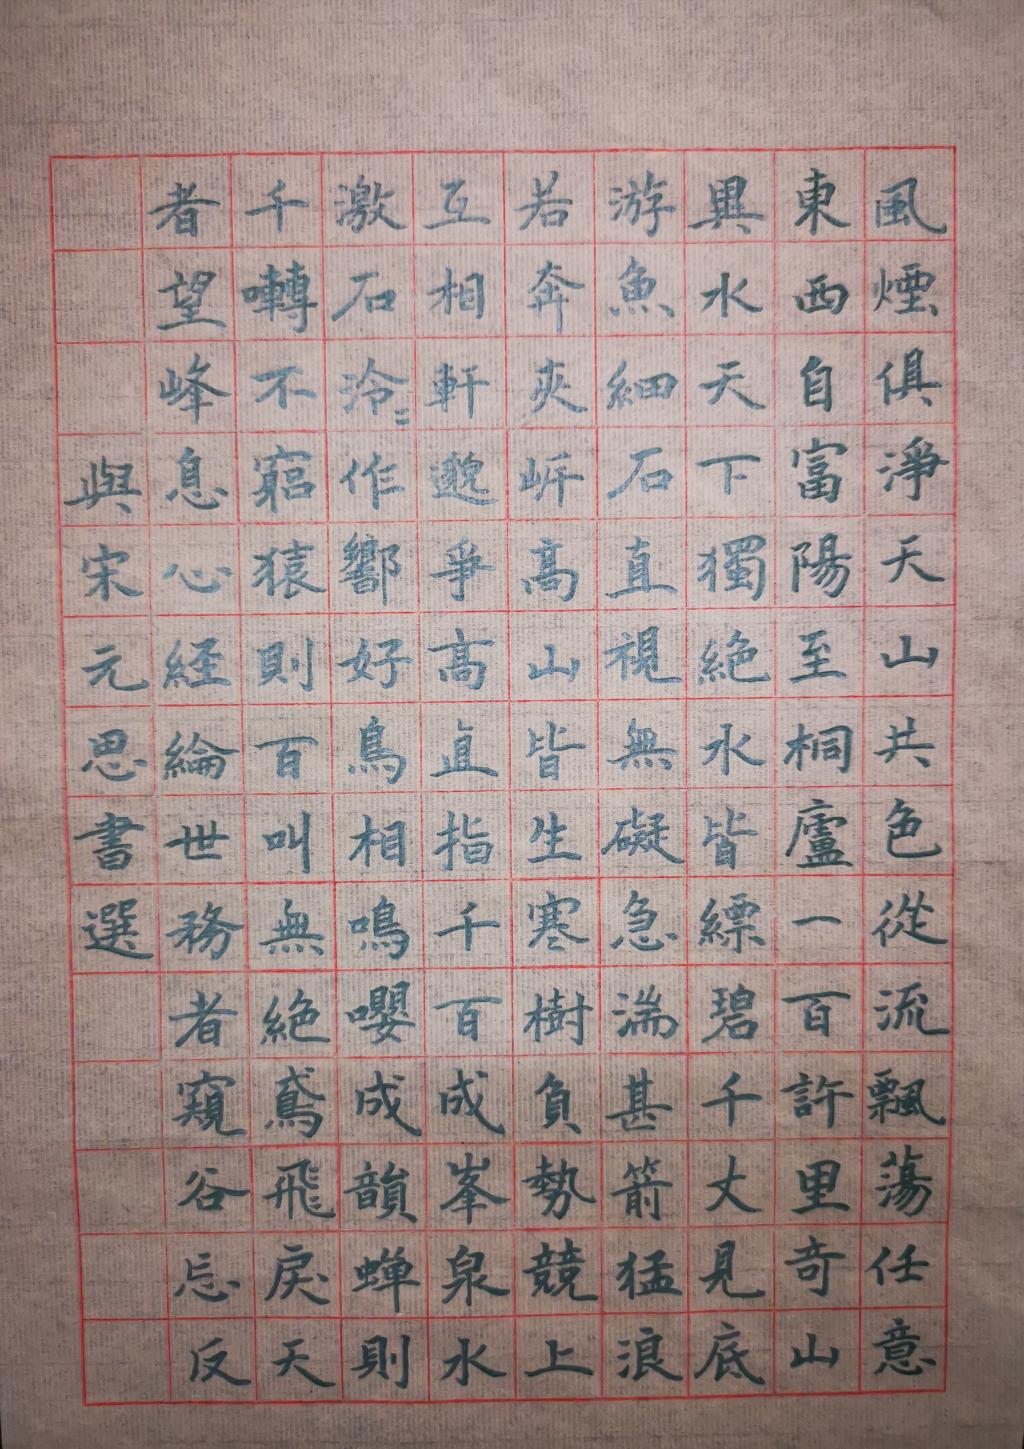 風煙俱淨天山共色從流飄蕩任意
東西自富陽至桐廬一百許里奇山
異水天下獨絕水皆縹碧千丈見底
游魚細石直視無礙急湍甚箭猛浪
若奔夾岍高山皆生寒樹負勢競上
互相軒邈爭高直指千百成峯泉水
激石泠〻作響好鳥相鳴嚶成韻蟬則
千囀不窮猿則百叫無絕鳶飛戾天
者望峰息心經綸世務者窺谷忘反
與宋元思書選